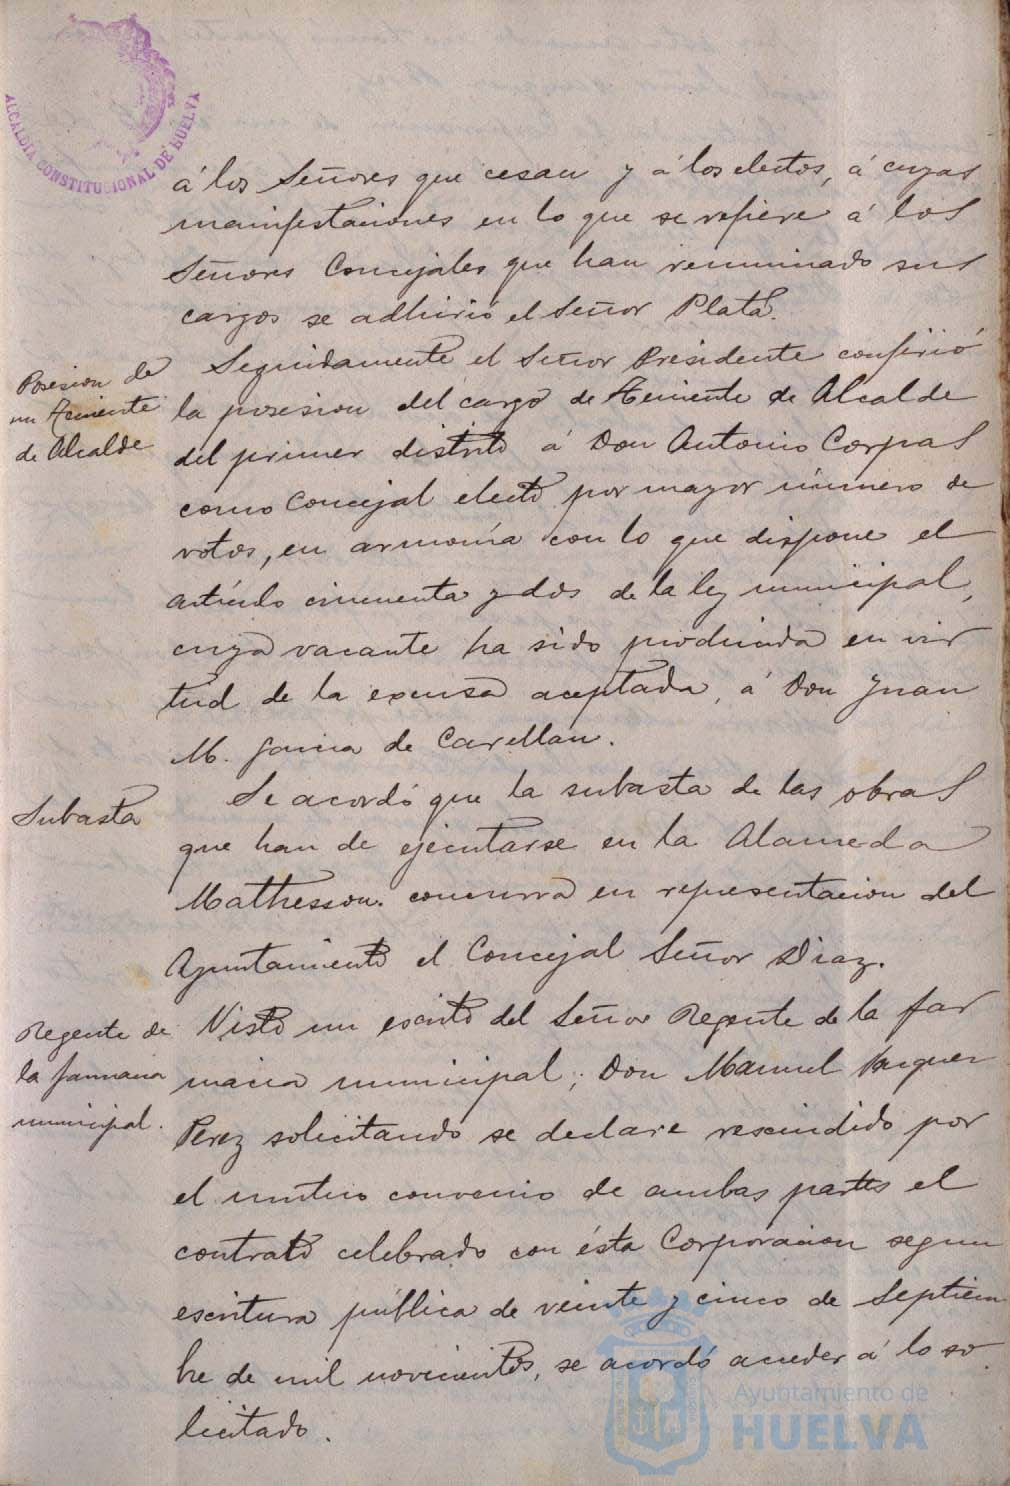 ALCALDIA CONSTITUCIONAL DE HUELVA
á los Señores que cesan y á los electos, á cuyas
manifestaciones en lo que se refiere á los
Señores Concejales que han renunciado sus
cargos se adhirió el Señor Plata.
Posesion de
un Teniente
de Alcalde
Seguidamente el Señor Presidente confirió
la posesion del cargo de Teniente de Alcalde
del primer distrito á Don Antonio Corpas
como Concejal electo por mayor número de
votos, en armonía con lo que dispone el
artículo cincuenta y dos de la ley municipal,
cuya vacante ha sido producida en vir
tud de la excusa aceptada, á Don Juan
M. Garcia de Carellan.
Subasta
Se acordó que la subasta de las obras
que han de ejecutarse en la Alameda
Mathesson. concurra en representacion del
Ayuntamiento el Concejal Señor Diaz.
Regente de
la farmacia
municipal.
Visto un escrito del Señor Regente de la far
macia municipal; Don Manuel Vazquez
Perez solicitando se declare rescindido por
el mutuo convenio de ambas partes el
contrato celebrado con ésta Corporacion segun
escritura pública de veinte y cinco de Septiem
bre de mil novecientos, se acordó acceder á lo so
licitado.
Ayuntamiento de
HUELVA